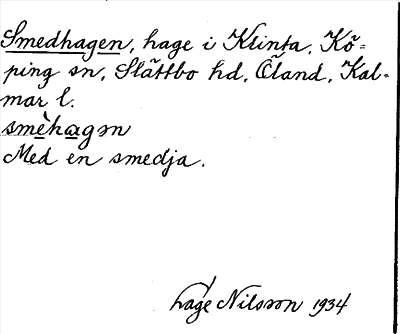 Smedhagen, hage i Klinta, Kö=
ping sn, Slättbo hd, Öland, Kal=
mar l.
smèhagən
Med en smedja.
Lage Nilsson 1934